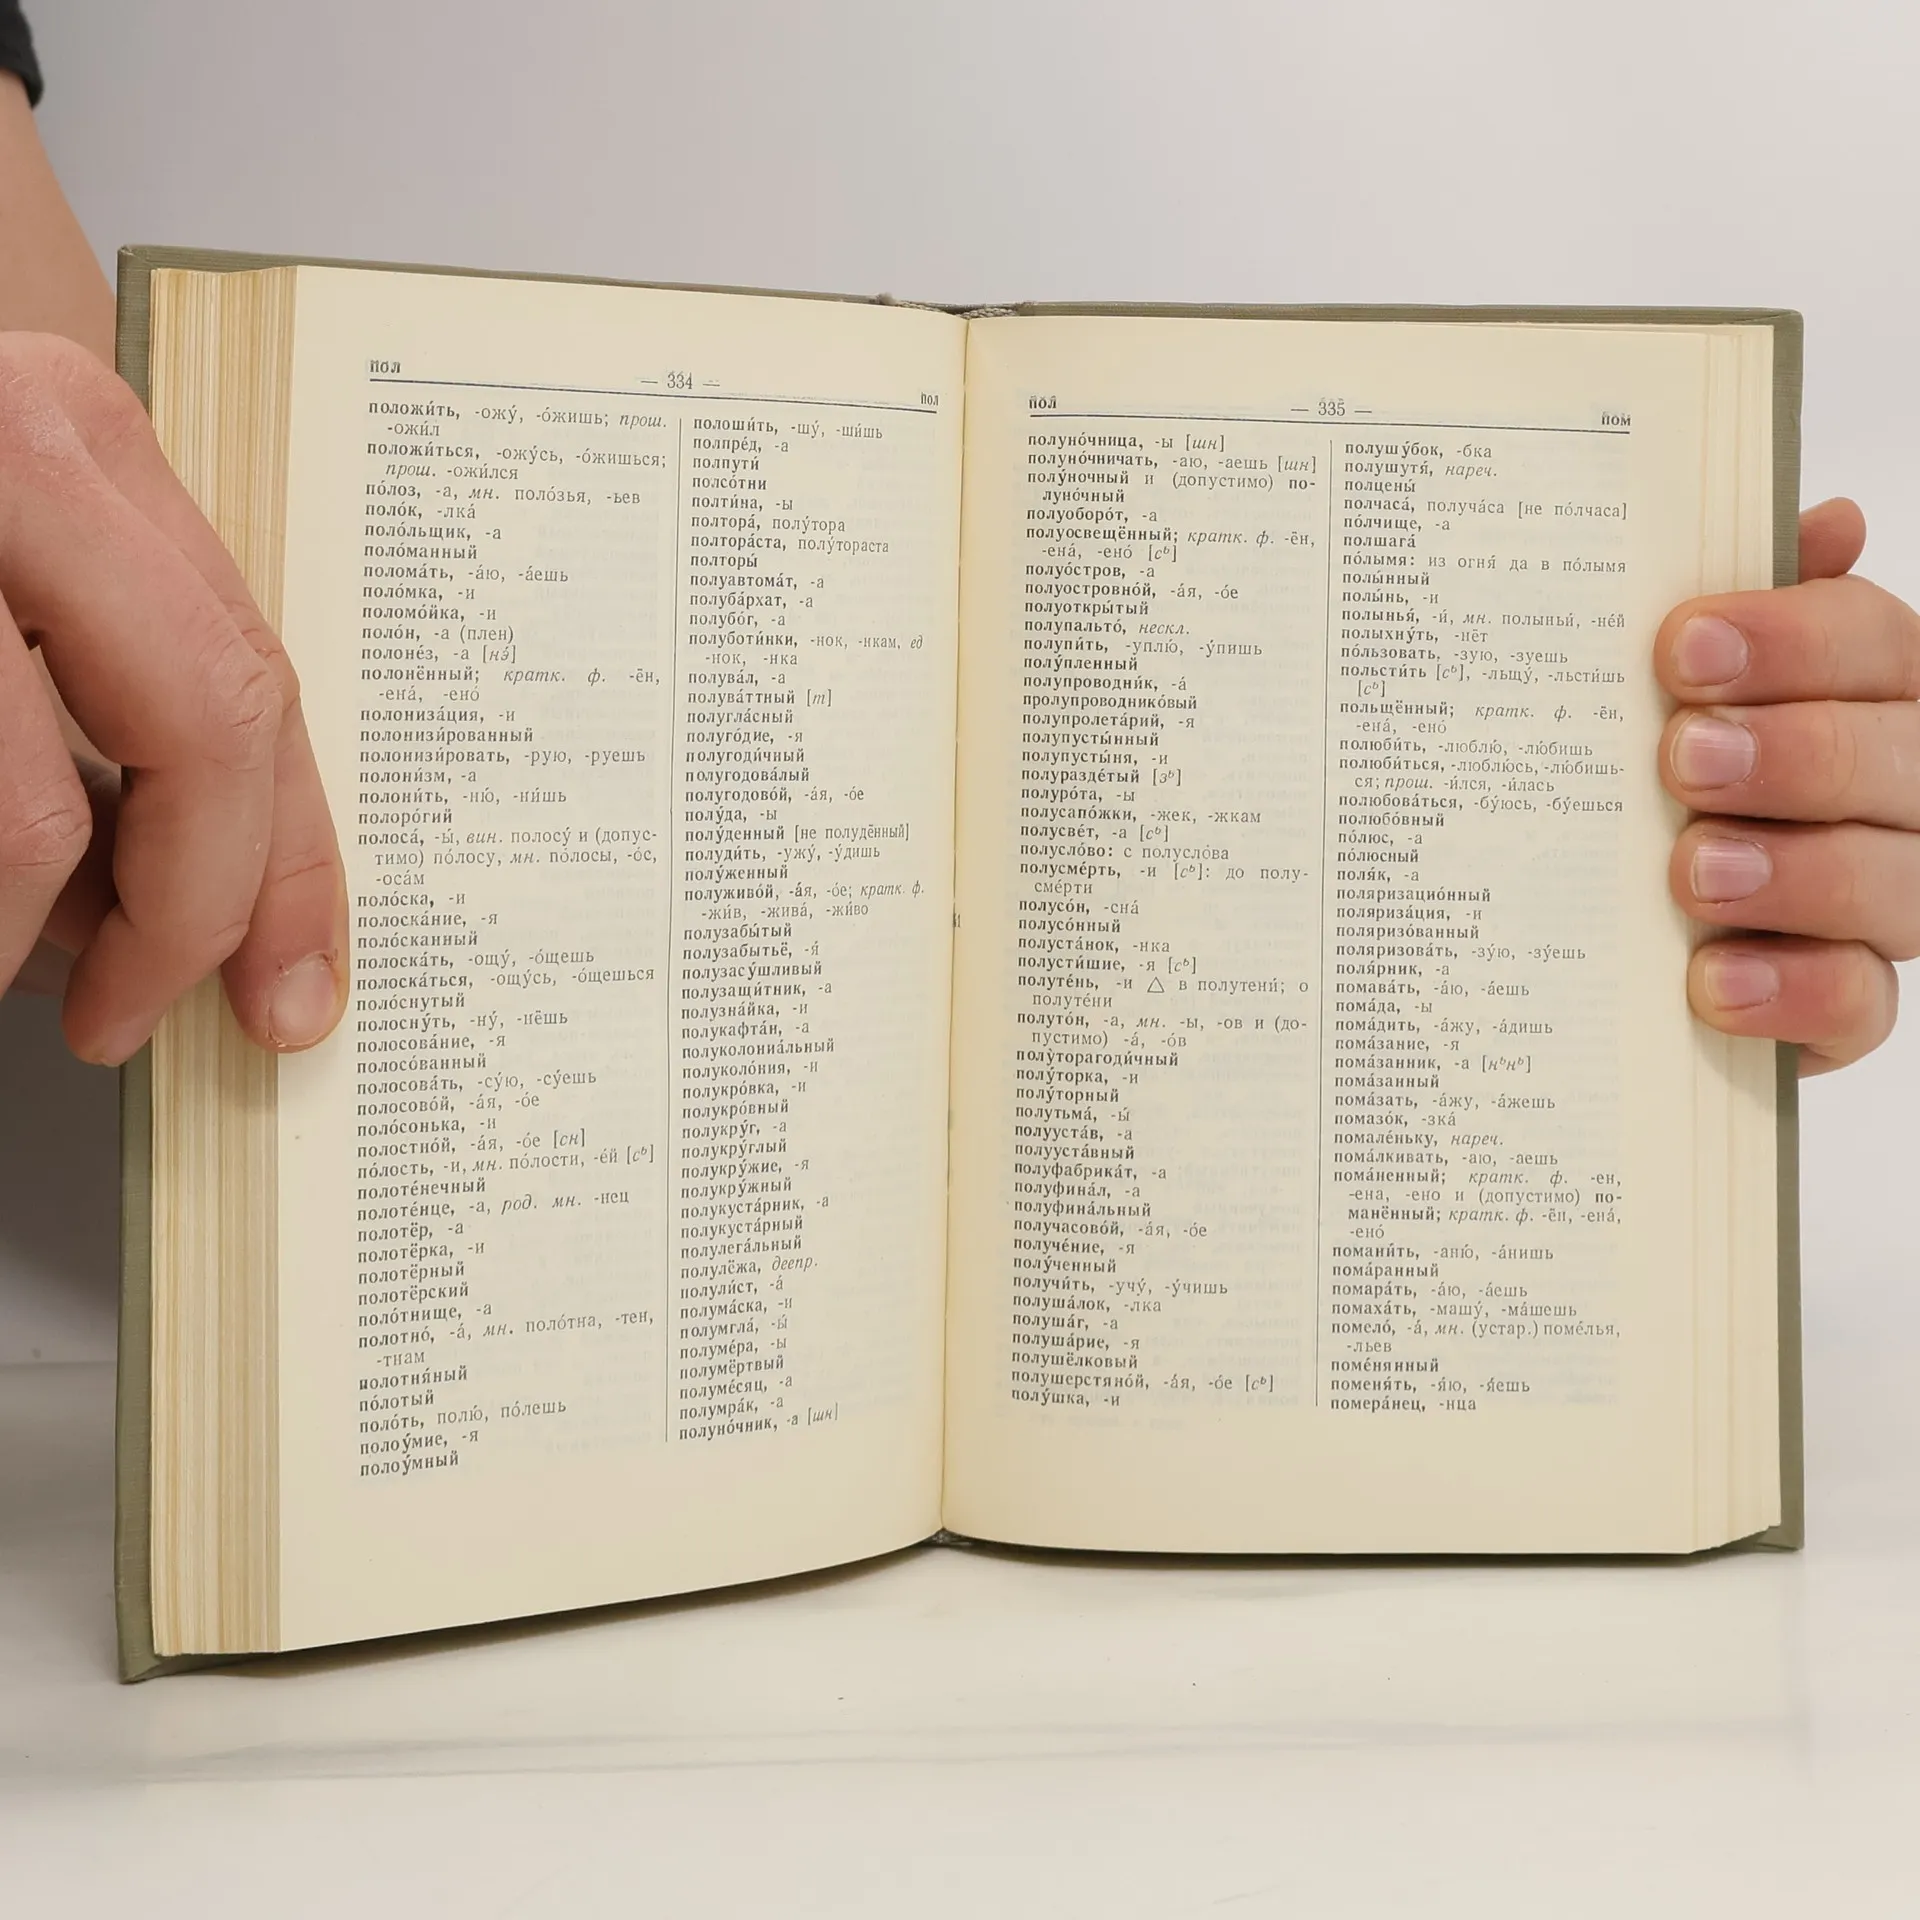 ПОЛ
— 334 —
ПОЛ
положи́ть, -ожу́, -о́жишь; прош.
-ожи́л
положи́ться, -ожу́сь, -о́жишься;
прош. -ожи́лся
по́лоз, -а, мн. поло́зья, -ьев
поло́к, -лка́
поло́льщик, -а
поло́манный
полома́ть, -а́ю, -а́ешь
поло́мка, -и
поломо́йка, -и
поло́н, -а (плен)
полоне́з, -а [нэ́]
полонённый; кратк. ф. -ён,
-ена́, -ено́
полониза́ция, -и
полонизи́рованный
полонизи́ровать, -рую, -руешь
полони́зм, -а
полони́ть, -ню́, -ни́шь
полоро́гий
полоса́, -ы́, вин. полосу́ и (допус-
тимо) по́лосу, мн. по́лосы, -о́с,
-оса́м
поло́ска, -и
полоска́ние, -я
поло́сканный
полоска́ть, -ощу́, -о́щешь
полоска́ться, -ощу́сь, -о́щешься
поло́снутый
полосну́ть, -ну́, -нёшь
полосова́ние, -я
полосо́ванный
полосова́ть, -су́ю, -су́ешь
полосово́й, -а́я, -о́е
поло́сонька, -и
полостно́й, -а́я, -о́е [сн]
по́лость, -и, мн. по́лости, -е́й [сь]
полоте́нечный
полоте́нце, -а, род. мн. -нец
полотёр, -а
полотёрка, -и
полотёрный
полотёрский
поло́тнище, -а
полотно́, -а́, мн. поло́тна, -тен,
-тнам
полотня́ный
по́лотый
поло́ть, полю́, по́лешь
полоу́мие, -я
полоу́мный
полоши́ть, -шу́, -ши́шь
полпре́д, -а
полпути́
полсо́тни
полти́на, -ы
полтора́, полу́тора
полтора́ста, полу́тораста
полторы́
полуавтома́т, -а
полуба́рхат, -а
полубо́г, -а
полуботи́нки, -нок, -нкам, ед
-нок, -нка
полува́л, -а
полува́ттный [т]
полугла́сный
полуго́дие, -я
полугоди́чный
полугодова́лый
полугодово́й, -а́я, -о́е
полу́да, -ы
полу́денный [не полудённый]
полуди́ть, -ужу́, -у́дишь
полу́женный
полуживо́й, -а́я, -о́е; кратк. ф.
-жи́в, -жива́, -жи́во
полузабы́тый
полузабытьё, -я́
полузасу́шливый
полузащи́тник, -а
полузна́йка, -и
полукафта́н, -а
полуколониа́льный
полуколо́ния, -и
полукро́вка, -и
полукро́вный
полукру́г, -а
полукру́глый
полукру́жие, -я
полукру́жный
полукуста́рник, -а
полукуста́рный
полулега́льный
полулёжа, деепр.
полули́ст, -а́
полума́ска, -и
полумгла́, -ы́
полуме́ра, -ы
полумёртвый
полуме́сяц, -а
полумра́к, -а
полуно́чник, -а [шн]
ПОЛ
— 335 —
ПОМ
полуно́чница, -ы [шн]
полуно́чничать, -аю, -аешь [шн]
полу́ночный и (допустимо) по-
луно́чный
полуоборо́т, -а
полуосвещённый; кратк. ф. -ён,
-ена́, -ено́ [сь]
полуо́стров, -а
полуостровно́й, -а́я, -о́е
полуоткры́тый
полупальто́, нескл.
полупи́ть, -уплю́, -у́пишь
полу́пленный
полупроводни́к, -а́
пролупроводнико́вый
полупролета́рий, -я
полупусты́нный
полупусты́ня, -и
полуразде́тый [зь]
полуро́та, -ы
полусапо́жки, -жек, -жкам
полусве́т, -а [сь]
полусло́во: с полусло́ва
полусме́рть, -и [сь]: до полу-
сме́рти
полусо́н, -сна́
полусо́нный
полуста́нок, -нка
полусти́шие, -я [сь]
полуте́нь, -и △ в полутени́; о
полуте́ни
полуто́н, -а, мн. -ы, -ов и (до-
пустимо) -а́, -о́в
полу́торагоди́чный
полу́торка, -и
полу́торный
полутьма́, -ы́
полууста́в, -а
полууста́вный
полуфабрика́т, -а
полуфина́л, -а
полуфина́льный
получасово́й, -а́я, -о́е
получе́ние, -я
полу́ченный
получи́ть, -учу́, -у́чишь
полуша́лок, -лка
полуша́г, -а
полуша́рие, -я
полушёлковый
полушерстяно́й, -а́я, -о́е [сь]
полу́шка, -и
полушу́бок, -бка
полушутя́, нареч.
полцены́
полчаса́, получа́са [не по́лчаса]
по́лчище, -а
полшага́
по́лымя: из огня́ да в по́лымя
полы́нный
полы́нь, -и
полынья́, -и́, мн. полыньи́, -не́й
полыхну́ть, -нёт
по́льзовать, -зую, -зуешь
польсти́ть [сь], -льщу́, -льсти́шь
[сь]
польщённый; кратк. ф. -ён,
-ена́, -ено́
полюби́ть, -люблю́, -лю́бишь
полюби́ться, -люблю́сь, -лю́бишь-
ся; прош. -и́лся, -и́лась
полюбова́ться, -бу́юсь, -бу́ешься
полюбо́вный
по́люс, -а
по́люсный
поля́к, -а
поляризацио́нный
поляриза́ция, -и
поляризо́ванный
поляризова́ть, -зу́ю, -зу́ешь
поля́рник, -а
помава́ть, -а́ю, -а́ешь
пома́да, -ы
пома́дить, -а́жу, -а́дишь
пома́зание, -я
пома́занник, -а [ньнь]
пома́занный
пома́зать, -а́жу, -а́жешь
помазо́к, -зка́
помале́ньку, нареч.
пома́лкивать, -аю, -аешь
пома́ненный; кратк. ф. -ен,
-ена, -ено и (допустимо) по-
манённый; кратк. ф. -ён, -ена́,
-ено́
помани́ть, -аню́, -а́нишь
пома́ранный
помара́ть, -а́ю, -а́ешь
помаха́ть, -машу́, -ма́шешь
помело́, -а́, мн. (устар.) поме́лья,
-льев
поме́нянный
поменя́ть, -я́ю, -я́ешь
помера́нец, -нца